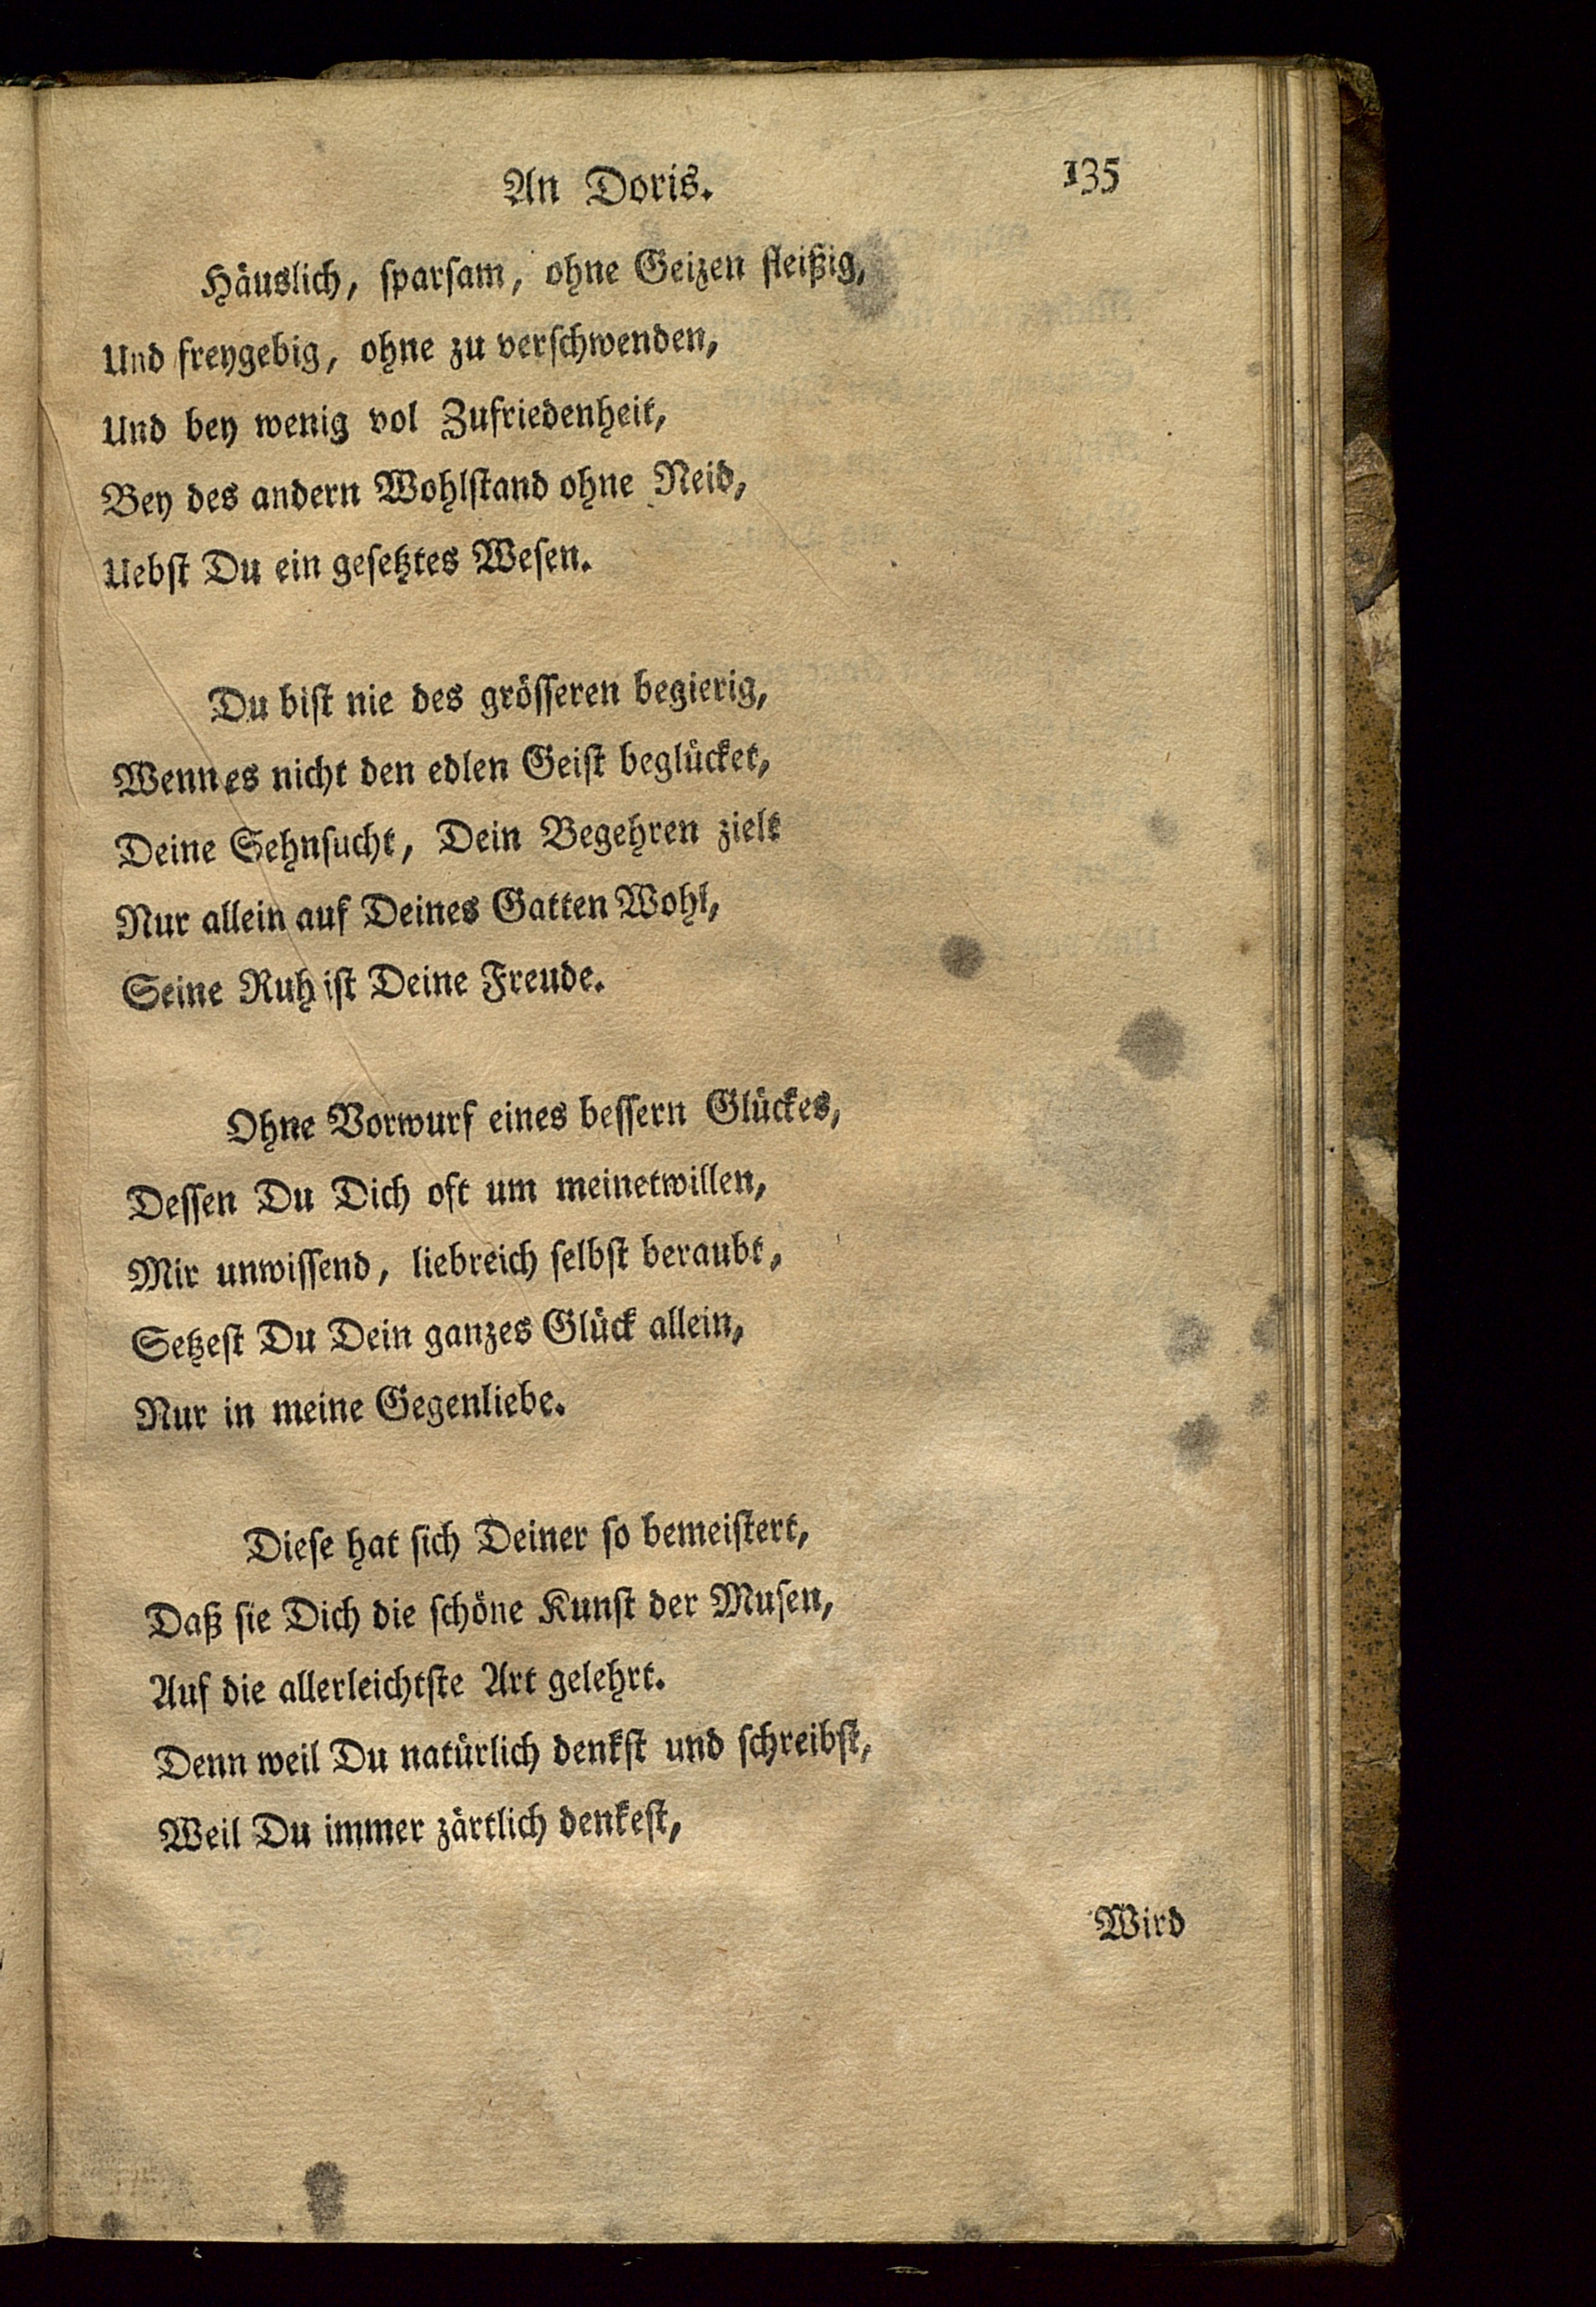 An Doris. 135
Häuslich, sparsam, ohne Geizen fleißig,
Und freygebig, ohne zu verschwenden,
Und bey wenig vol Zufriedenheit,
Bey des andern Wohlstand ohne Neid,
Uebst Du ein gesetztes Wesen.
Du bist nie des grösseren begierig,
Wenn es nicht den edlen Geist beglücket,
Deine Sehnsucht, Dein Begehren zielt
Nur allein auf Deines Gatten Wohl,
Seine Ruh ist Deine Freude.
Ohne Vorwurf eines bessern Glückes,
Dessen Du Dich oft um meinetwillen,
Mir unwissend, liebreich selbst beraubt,
Setzest Du Dein ganzes Glück allein,
Nur in meine Gegenliebe.
Diese hat sich Deiner so bemeistert,
Daß sie Dich die schöne Kunst der Musen,
Auf die allerleichtste Art gelehrt.
Denn weil Du natürlich denkst und schreibst,
Weil Du immer zärtlich denkest,
Wird